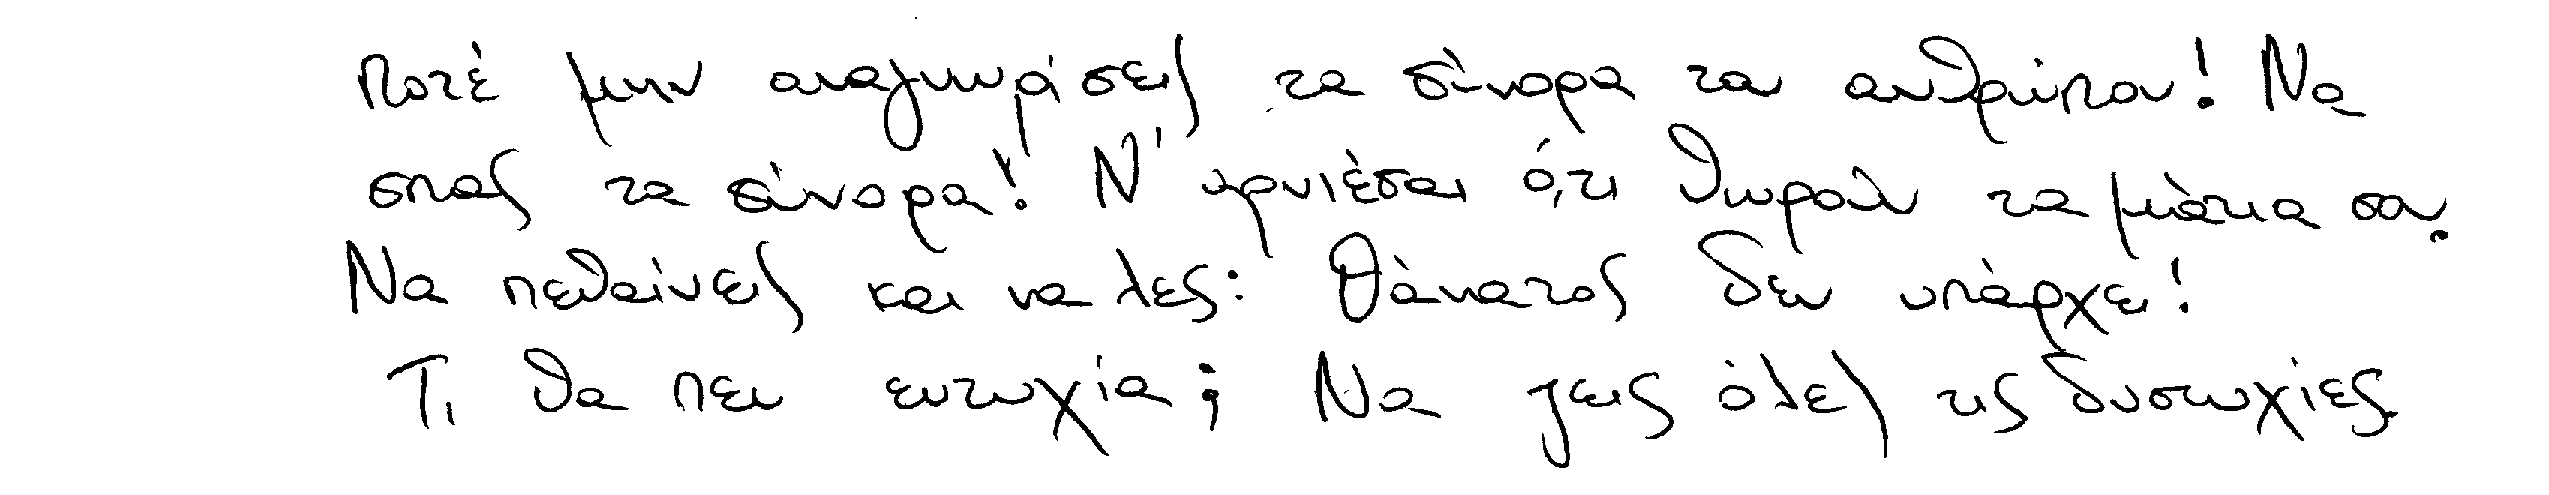 Ποτέ μην αναγνωρίσεις τα σύνορα του ανθρώπου! Να
σπας τα σύνορα! Ν' αρνιέσαι ό,τι θωρούν τα μάτια σου.
Να πεθαίνεις και να λες: Θάνατος δεν υπάρχει!
Τι θα πει ευτυχία; Να ζεις όλες τις δυστυχίες.